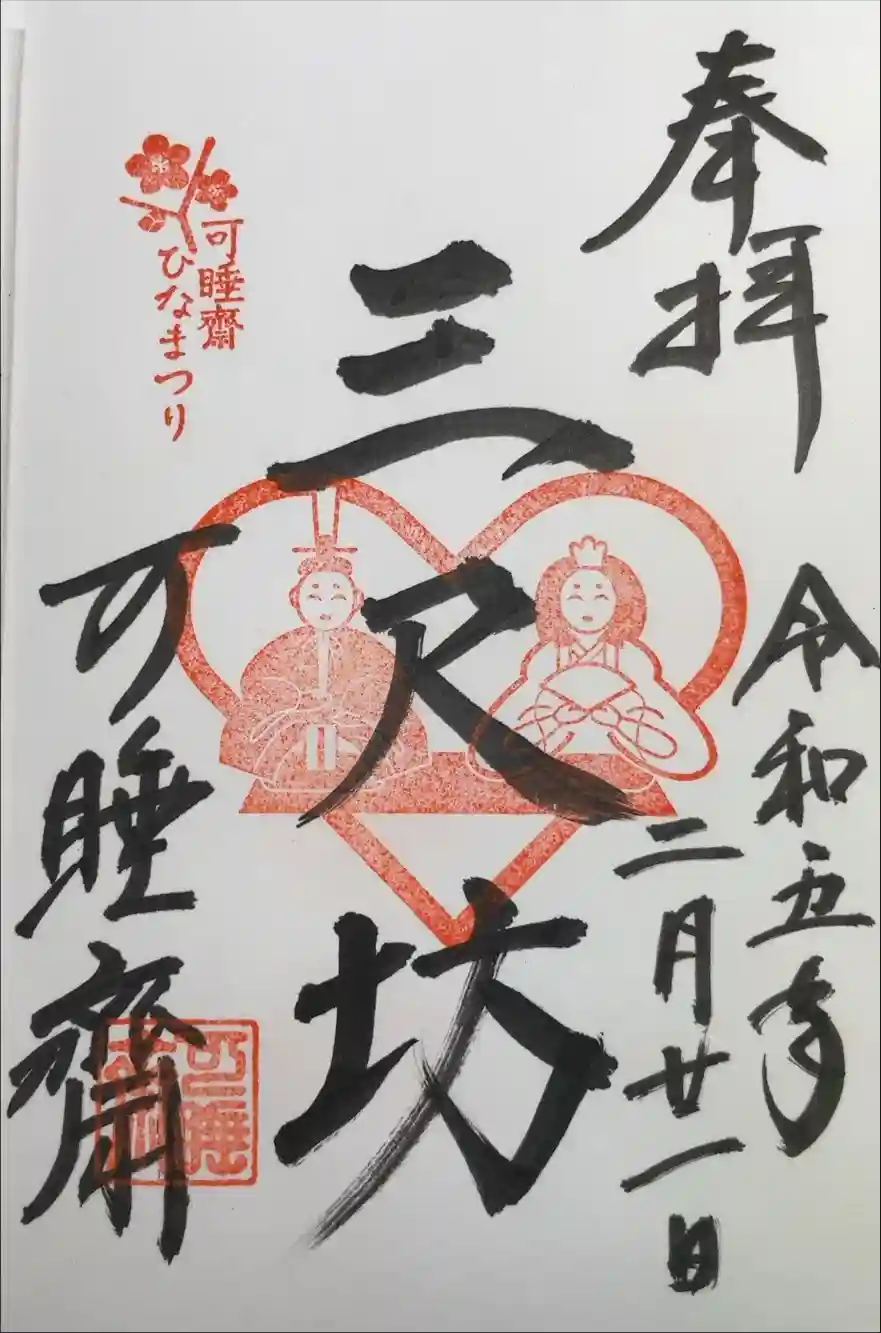 奉拝
令和五年
二月廿一日
三尺坊
可睡齋
ひなまつり
可睡齋